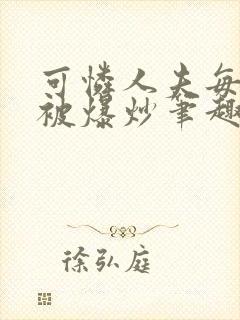 可憐人夫每
被爆炒筆趣
徐弘庭